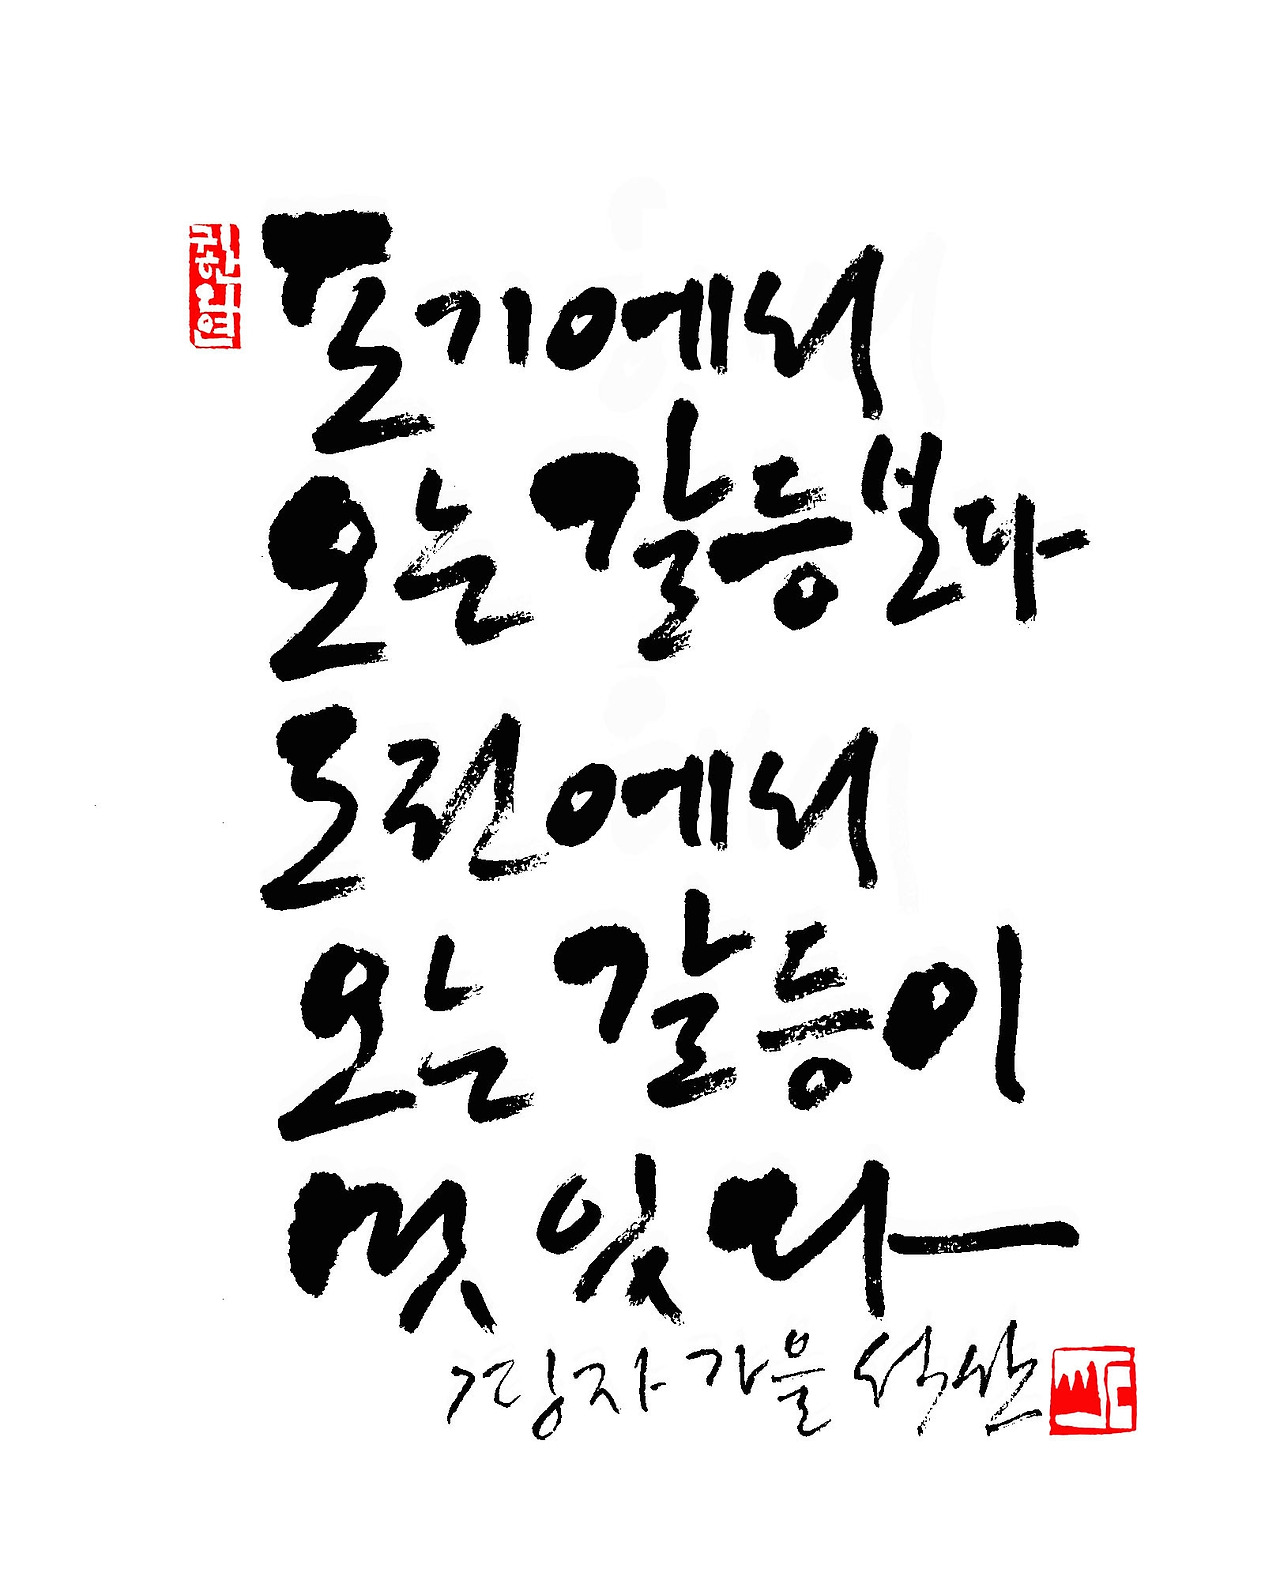 포기에서
오는 갈등보다
도전에서
오는 갈등이
멋있다
경자 가을 석산